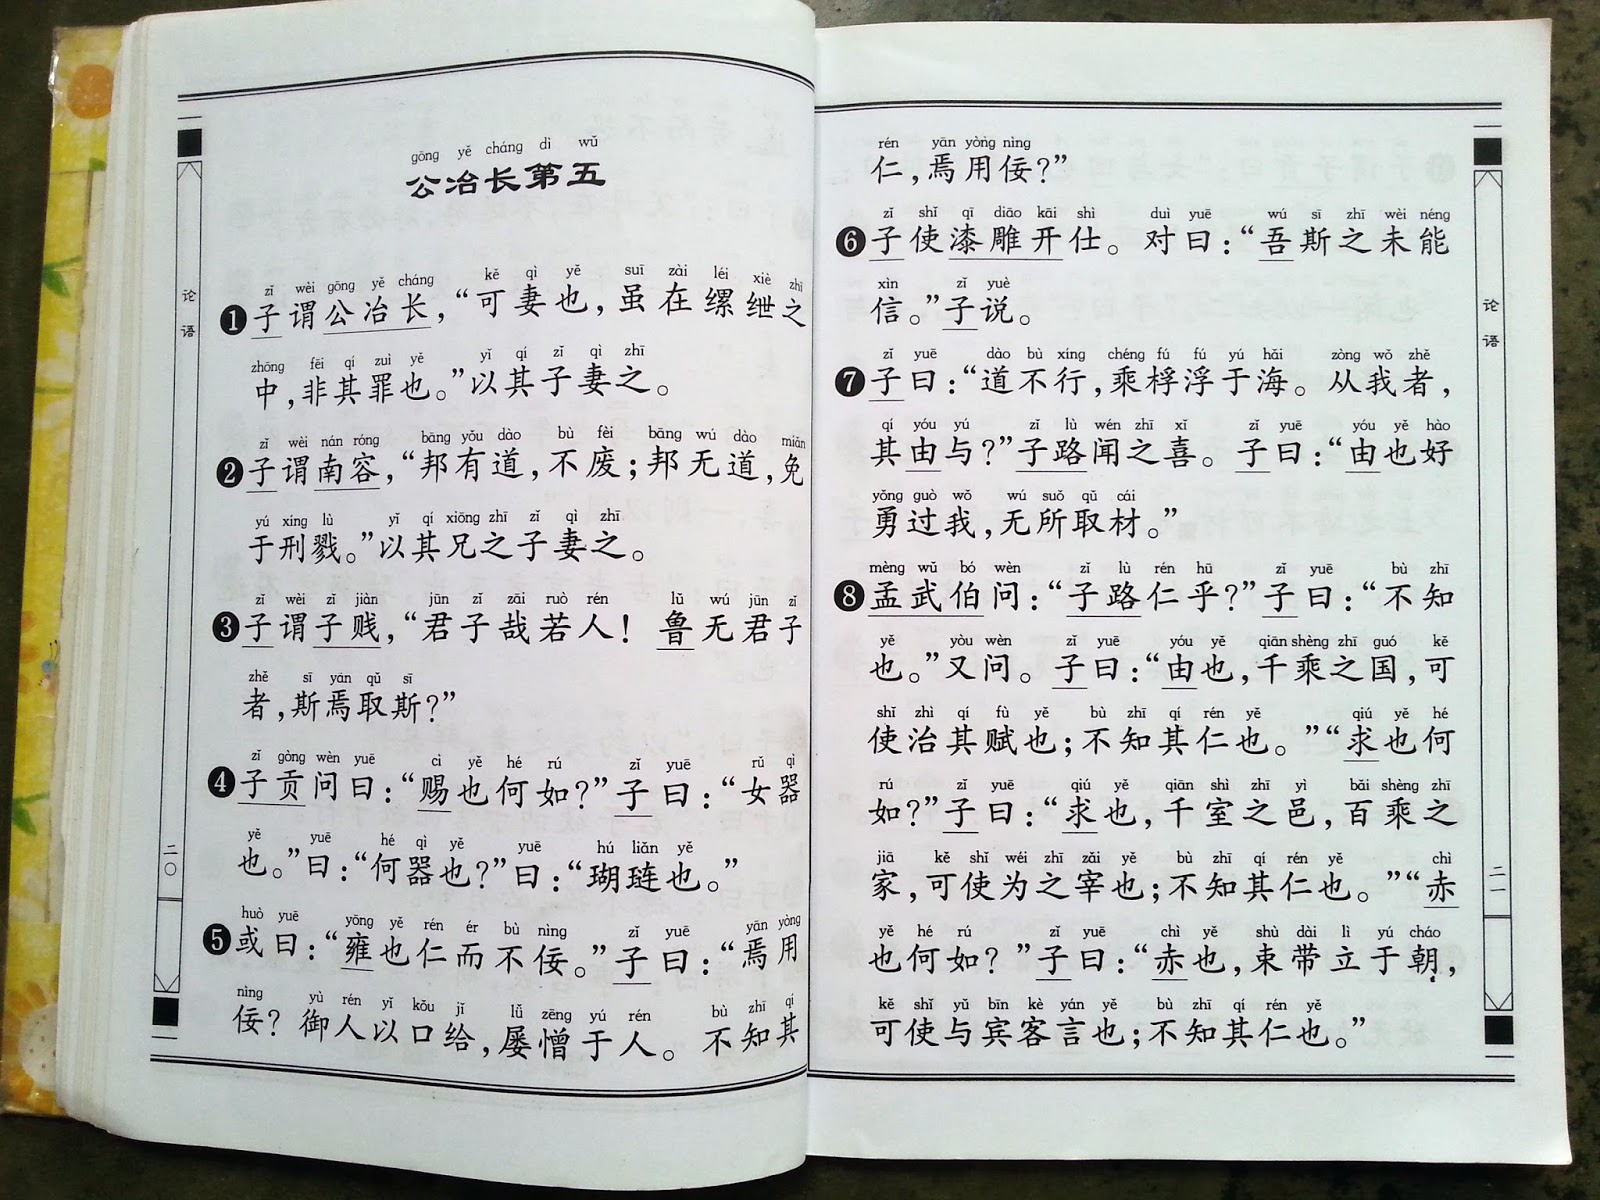 gōng yě cháng dì wǔ
公冶长第五
zǐ wèi gōng yě cháng kě qì yě suī zài léi xiè zhī
❶子谓公冶长，“可妻也，虽在缧绁之
zhōng fēi qí zuì yě yǐ qí zǐ qì zhī
中，非其罪也。”以其子妻之。
zǐ wèi nán róng bāng yǒu dào bù fèi bāng wú dào miǎn
❷子谓南容，“邦有道，不废；邦无道，免
yú xíng lù yǐ qí xiōng zhī zǐ qì zhī
于刑戮。”以其兄之子妻之。
zǐ wèi zǐ jiàn jūn zǐ zāi ruò rén lǔ wú jūn zǐ
❸子谓子贱，“君子哉若人！鲁无君子
zhě sī yán qǔ sī
者，斯焉取斯？”
zǐ gòng wèn yuē cì yě hé rú zǐ yuē rǔ qì
❹子贡问曰：“赐也何如？”子曰：“女器
yě yuē hé qì yě yuē hú liǎn yě
也。”曰：“何器也？”曰：“瑚琏也。”
huò yuē yōng yě rén ér bù nìng zǐ yuē yān yòng
❺或曰：“雍也仁而不佞。”子曰：“焉用
nìng yù rén yǐ kǒu jǐ lǚ zēng yú rén bù zhī qí
佞？御人以口给，屡憎于人。不知其
论语
二〇
rén yān yòng nìng
仁，焉用佞？”
zǐ shǐ qī diāo kāi shì duì yuē wú sī zhī wèi néng
❻子使漆雕开仕。对曰：“吾斯之未能
xìn zǐ yuè
信。”子说。
zǐ yuē dào bù xíng chéng fú fú yú hǎi zòng wǒ zhě
❼子曰：“道不行，乘桴浮于海。从我者，
qí yóu yú zǐ lù wén zhī xǐ zǐ yuē yóu yě hào
其由与？”子路闻之喜。子曰：“由也好
yǒng guò wǒ wú suǒ qǔ cái
勇过我，无所取材。”
mèng wǔ bó wèn zǐ lù rén hū zǐ yuē bù zhī
❽孟武伯问：“子路仁乎？”子曰：“不知
yě yòu wèn zǐ yuē yóu yě qiān shèng zhī guó kě
也。”又问。子曰：“由也，千乘之国，可
shǐ zhì qí fù yě bù zhī qí rén yě qiú yě hé
使治其赋也；不知其仁也。”“求也何
rú zǐ yuē qiú yě qiān shì zhī yì bǎi shèng zhī
如？”子曰：“求也，千室之邑，百乘之
jiā kě shǐ wéi zhī zǎi yě bù zhī qí rén yě chì
家，可使为之宰也；不知其仁也。”“赤
yě hé rú zǐ yuē chì yě shù dài lì yú cháo
也何如？”子曰：“赤也，束带立于朝，
kě shǐ yǔ bīn kè yán yě bù zhī qí rén yě
可使与宾客言也；不知其仁也。”
论语
二一